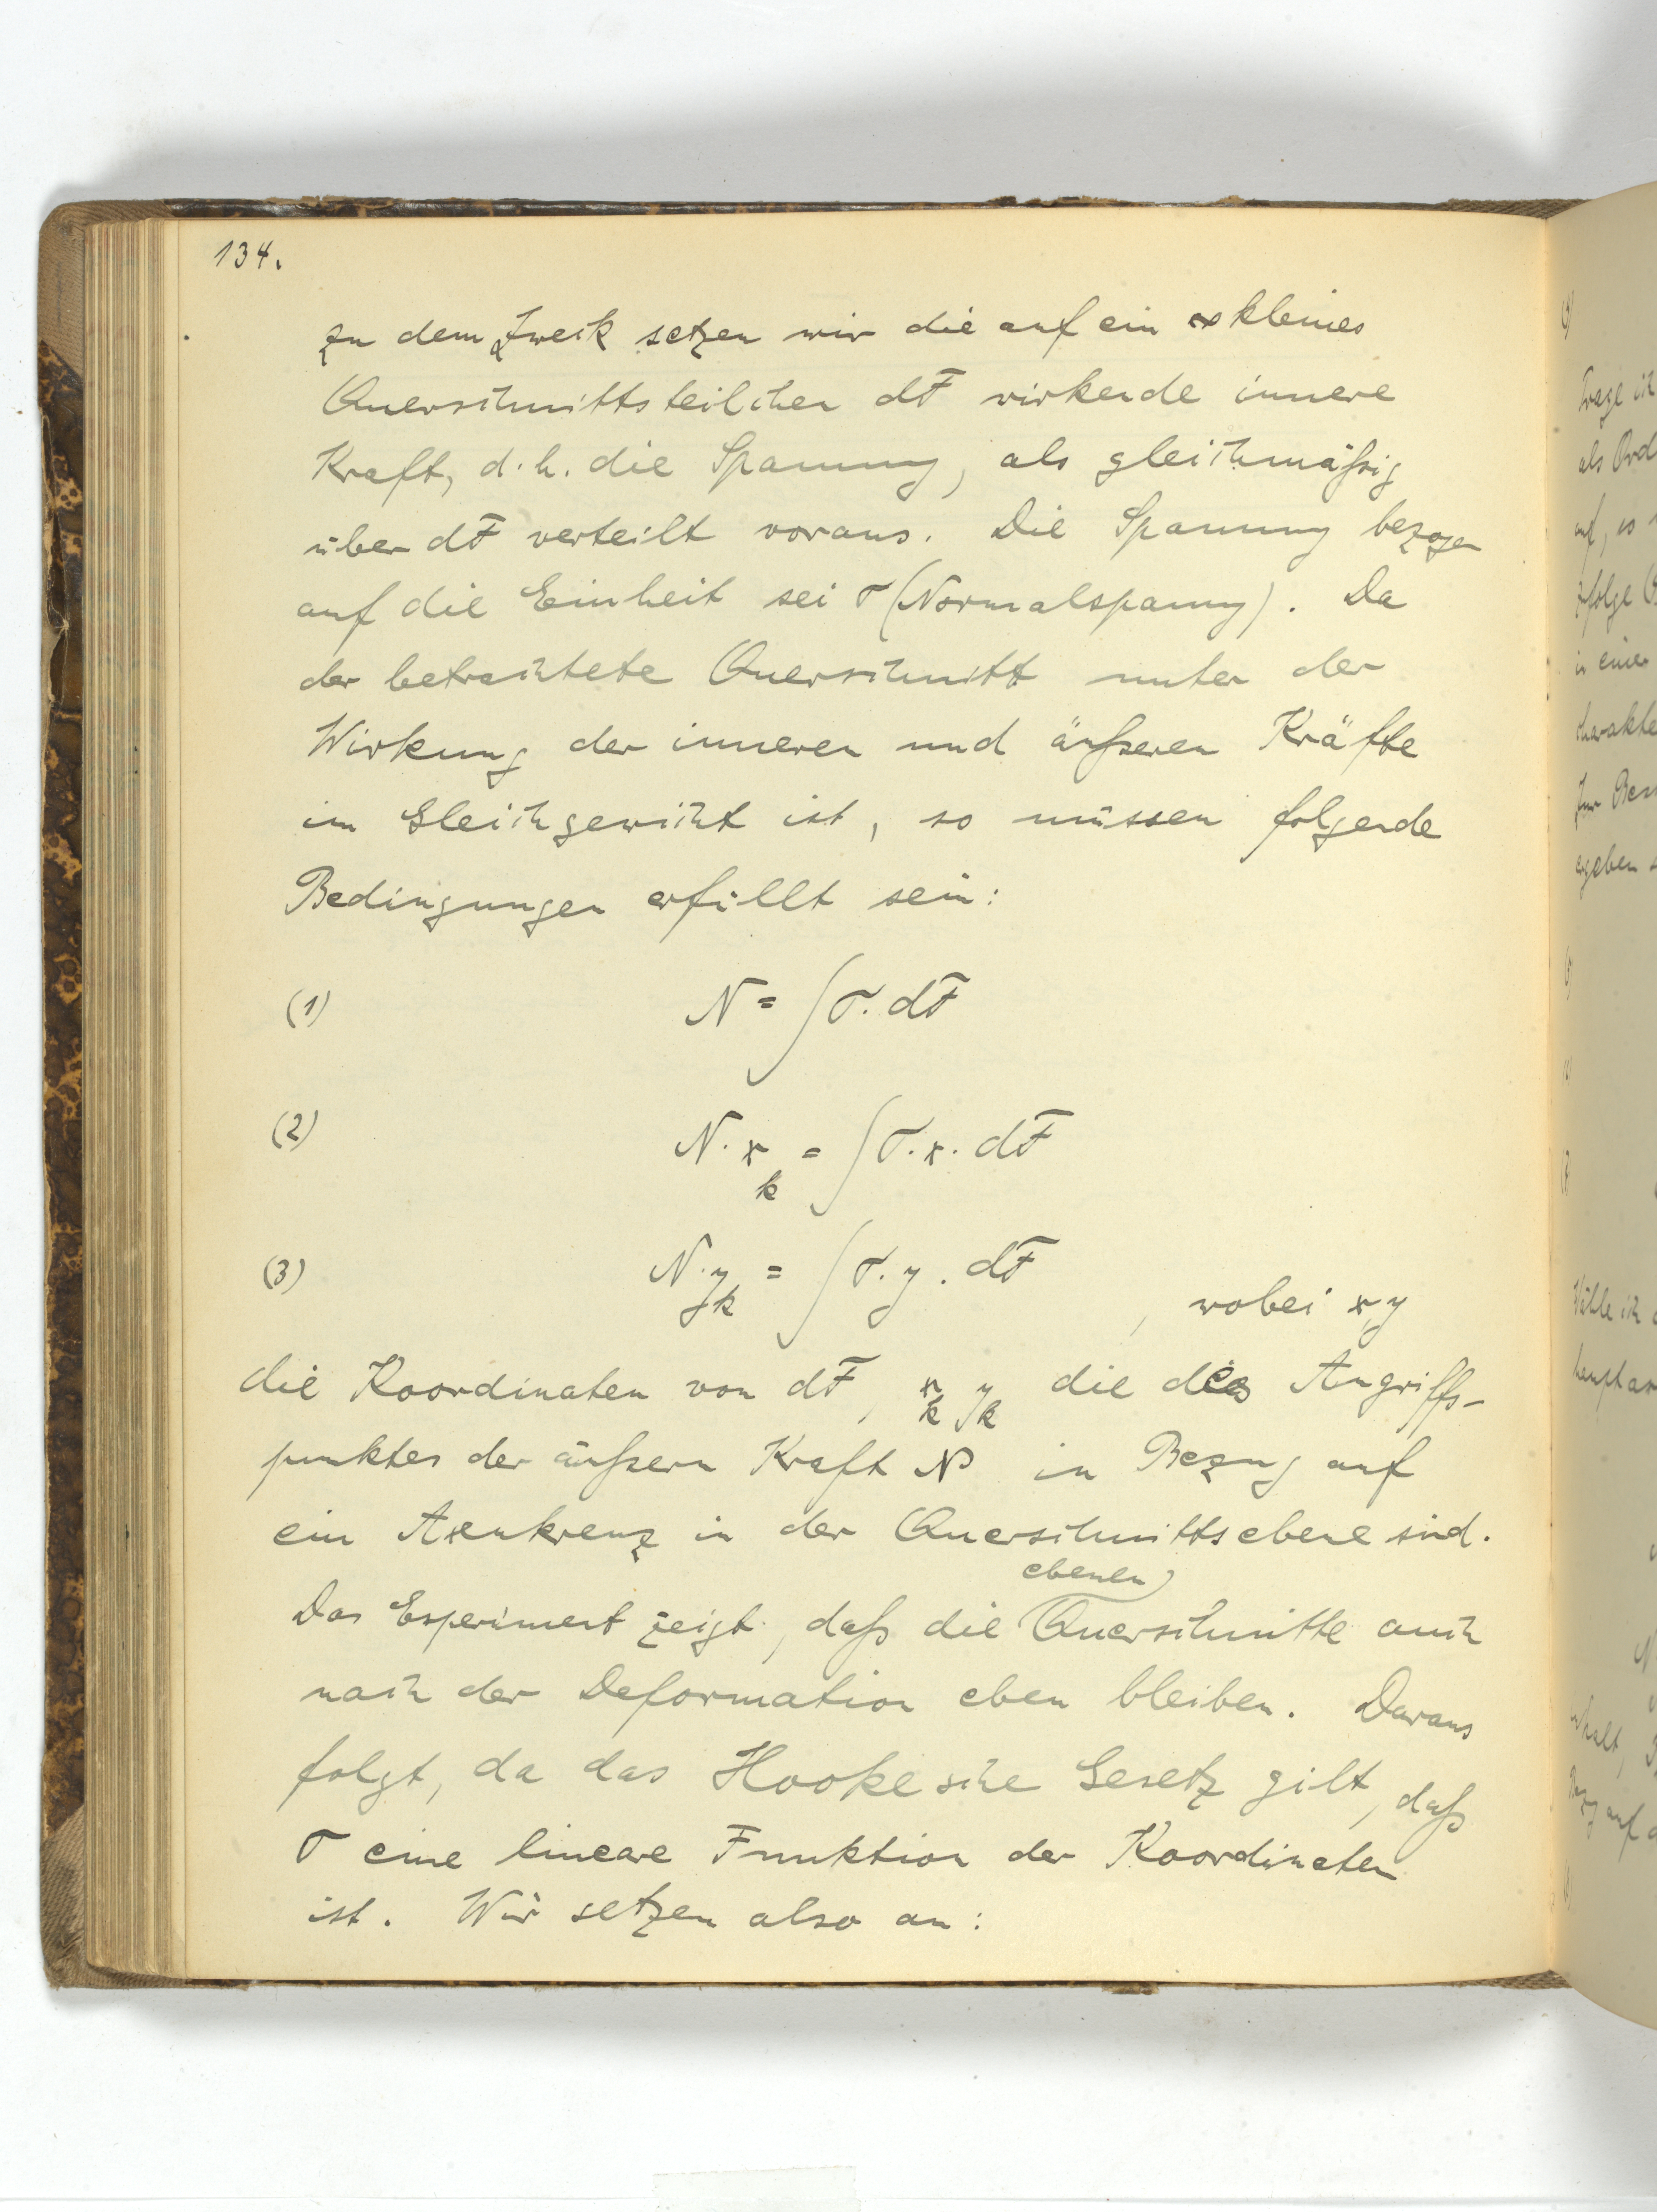 134.
zu dem Zweck setzen wir die auf ein ∞ kleines
Querschnittsteilchen dF wirkende innere
Kraft, d.h. die Spannung, als gleichmäßig
über dF verteilt voraus. Die Spannung bezogen
auf die Einheit sei σ (Normalspannung). Da
der betrachtete Querschnitt unter der
Wirkung der inneren und äußeren Kräfte
im Gleichgewicht ist, so müssen folgende
Bedingungen erfüllt sein:
(1) N = ∫σ.dF
(2) N.x_k = ∫σ.x.dF
(3) N.y_k = ∫σ.y.dF
, wobei x,y
die Koordinaten von dF, x_k y_k die des Angriffs-
punktes der äußern Kraft N in Bezug auf
ein Axenkreuz in der Querschnittsebene sind.
ebenen
Das Experiment zeigt, daß die Querschnitte auch
nach der Deformation eben bleiben. Daraus
folgt, da das Hookesche Gesetz gilt, daß
σ eine lineare Funktion der Koordinaten
ist. Wir setzen also an: